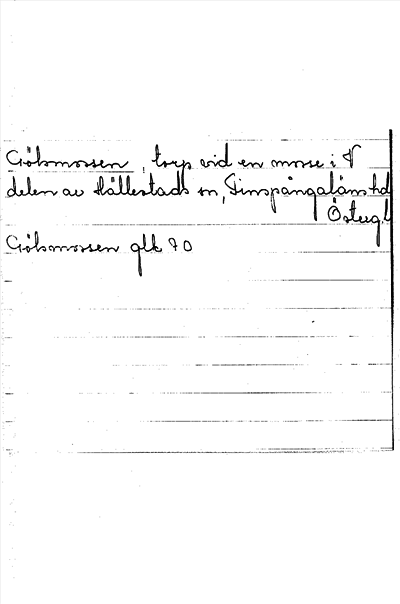 Gölsmossen, torp vid en mosse i V
delen av Hällestads sn, Finspångaläns hd
Östergl
Gölsmossen glk 70